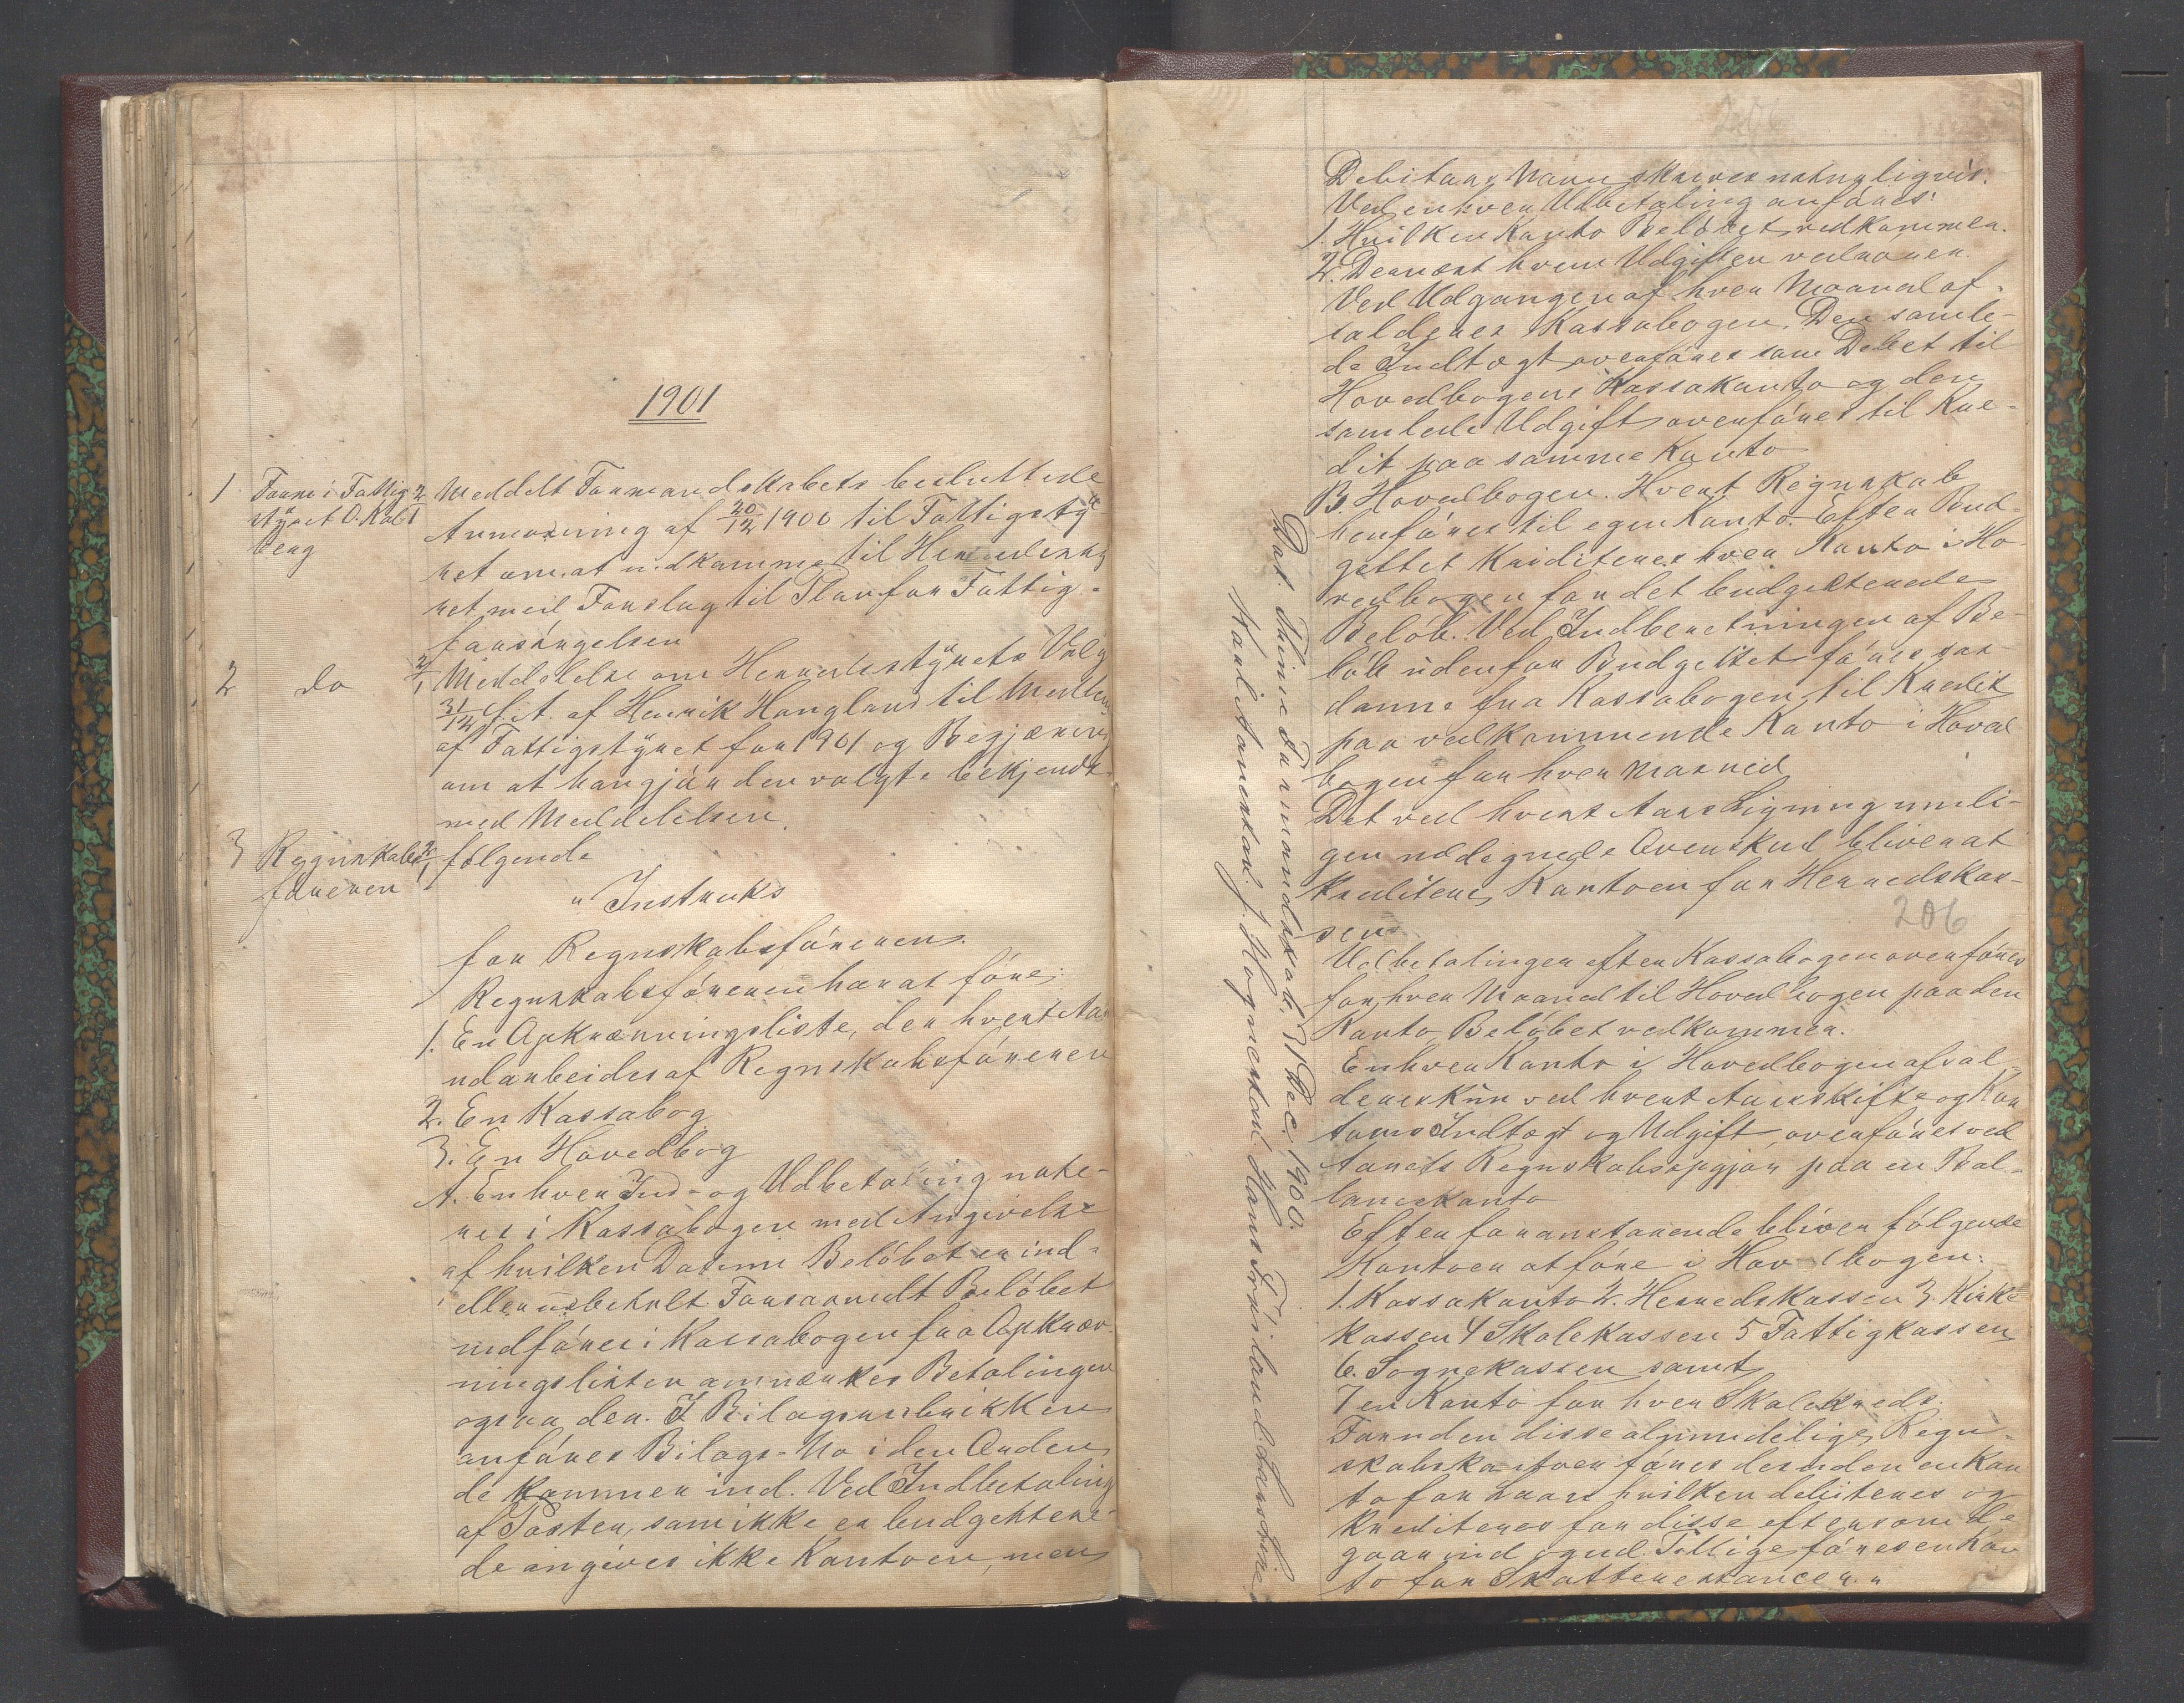 1901
1 Form. i Fattig-
styret O. Kol-
berg
2/1 Meddelt Formandskabets besluttede
Anmodning af 20/12 1900 til Fattigsty-
ret om at indkomme til Herredssty-
ret med Forslag til Plan for Fattig-
forsørgelsen
2 do 2/1 Meddelelse om Herredsstyrets Valg
31/12 f. A. af Henrik Haugland til Medlem
af Fattigstyret for 1901 og Begjæring
om at han gjør den valgte bekjendt
med Meddelelsen.
3 Regnskabs-
føreren
2/1 følgende
" Instruks
for Regnskabsføreren.
Regnskabsføreren har at føre:
1. En Opkrævningsliste, der hvert Aar
udarbeides af Regnskabsføreren
2. En Kassabog
3. En Hovedbog
A. Enhver Ind- og Udbetaling note-
res i Kassabogen med Angivelse
af hvilken Datum Beløbet er ind-
eller udbetalt. Forsaavidt Beløbet
indføres i Kassabogen fra Opkræv-
ningslisten anmærkes Betalingen
ogsaa der. I Bilagsrubrikken
anføres Bilags-No i den Orden
de kommer ind. Ved Indbetaling
af Poster, som ikke er budgettere-
de angives ikke Kontoen, men
206
Debitors Navn skrives naturligvis.
Ved enhver Udbetaling anføres:
1. Hvilken Konto Beløbet vedkommer.
2. Dernæst hvem Udgiften vedrører.
Ved Udgangen af hver Maaned af-
salderes Kassabogen. Den samle-
de Indtægt overføres som Debet til
Hovedbogens Kassakonto og den
samlede Udgift overføres til Kre-
dit paa samme Konto
B. Hovedbogen. Hvert Regnskab
henføres til egen Konto. Efter Bud-
gettet krediteres hver Konto i Ho-
vedbogen for det budgetterede
Beløb. Ved Indberetningen af Be-
løb udenfor Budgettet føres saa-
danne fra Kassabogen til Kredit
paa vedkommende Konto i Hoved
bogen for hver Maaned
Det ved hvert Aars Ligning muli-
gen udlignede Overskud bliver at
kreditere Kontoen for Herredskas-
sen.
206
Udbetalinger efter Kassabogen overføres
for hver Maaned til Hovedbogen paa den
Konto Beløbet vedkommer.
Enhver Konto i Hovedbogen afsal-
deres kun ved hvert Aarsskifte og Kon
toens Indtægt og Udgift overføres ved
Aarets Regnskabsopgjør paa en Bal-
lancekonto
Efter foranstaaende bliver følgende
Kontoer at føre i Hovedbogen:
1. Kassakonto 2. Herredskassen 3. Kirke
kassen 4 Skolekassen 5 Fattigkassen
6. Sognekassen samt
7 en Konto for hver Skolekreds.
Foruden disse almindelige Regn-
skabskontoer føres desuden en Kon
to for Laan hvilken debiteres og
krediteres for disse eftersom de
gaar ind og ud. Tillige føres en Kon
to for Skatterestancer."
Dat. Torvestad Formandskab, 31 Dec. 1900.